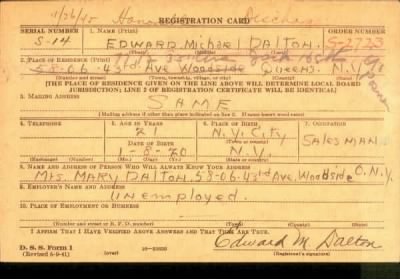 1/26/45 Hon
REGISTRATION CARD
SERIAL NUMBER 1. NAME (Print) ORDER NUMBER
S-14 EDWARD Michael DALTON S-2723
(First) (Middle) (Last)
2. PLACE OF RESIDENCE (Print)
58-06 43rd Ave Woodside Queens N.Y.
(Number and street) (Town, township, village, or city) (County) (State)
[THE PLACE OF RESIDENCE GIVEN ON THE LINE ABOVE WILL DETERMINE LOCAL BOARD
JURISDICTION; LINE 2 OF REGISTRATION CERTIFICATE WILL BE IDENTICAL]
3. MAILING ADDRESS
SAME
4. TELEPHONE 5. AGE IN YEARS 6. PLACE OF BIRTH 7. OCCUPATION
21 N.Y. City SALESMAN
DATE OF BIRTH
1-8-20 N.Y.
(Exchange) (Number) (Mo.) (Day) (Yr.) (State or country)
8. NAME AND ADDRESS OF PERSON WHO WILL ALWAYS KNOW YOUR ADDRESS
Mrs. MARY DALTON. 58-06-43rd Ave, Woodside Q. N.Y.
9. EMPLOYER'S NAME AND ADDRESS
Unemployed.
10. PLACE OF EMPLOYMENT OR BUSINESS
(Number and street or R. F. D. number) (Town) (County) (State)
I AFFIRM THAT I HAVE VERIFIED ABOVE ANSWERS AND THAT THEY ARE TRUE.
Edward M. Dalton
D. S. S. Form 1
(Revised 5-9-41) (over) (Registrant's signature)